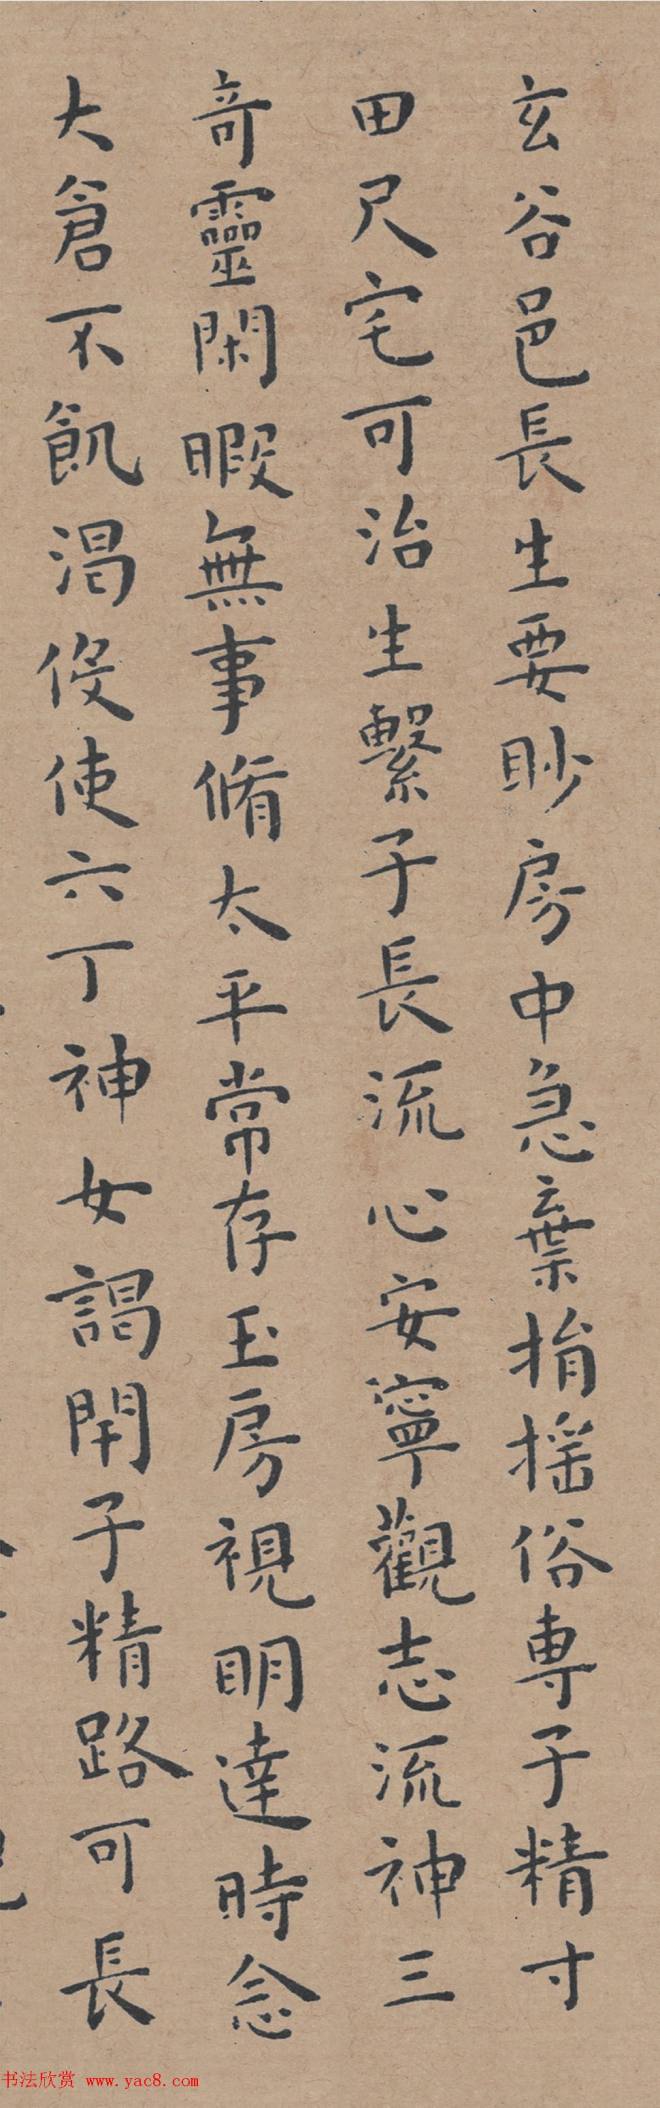 玄谷邑長生要眇房中急棄捐揺俗専子精寸
田尺宅可治生繫子長流心安寧觀志流神三
奇靈閑暇無事脩太平常存玉房視明達時念
大倉不飢渴役使六丁神女謁閇子精路可長
书法欣赏 www.yac8.com